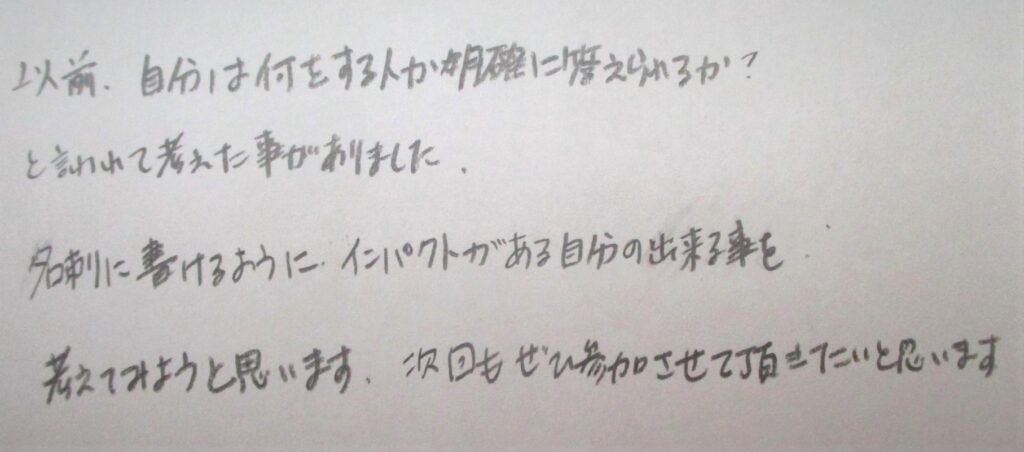 以前、自分は何をする人か明確に答えられるか？
と言われて考えた事がありました、
名刺に書けるように、インパクトがある自分の出来る事を
考えてみようと思います、次回もぜひ参加させて頂きたいと思います